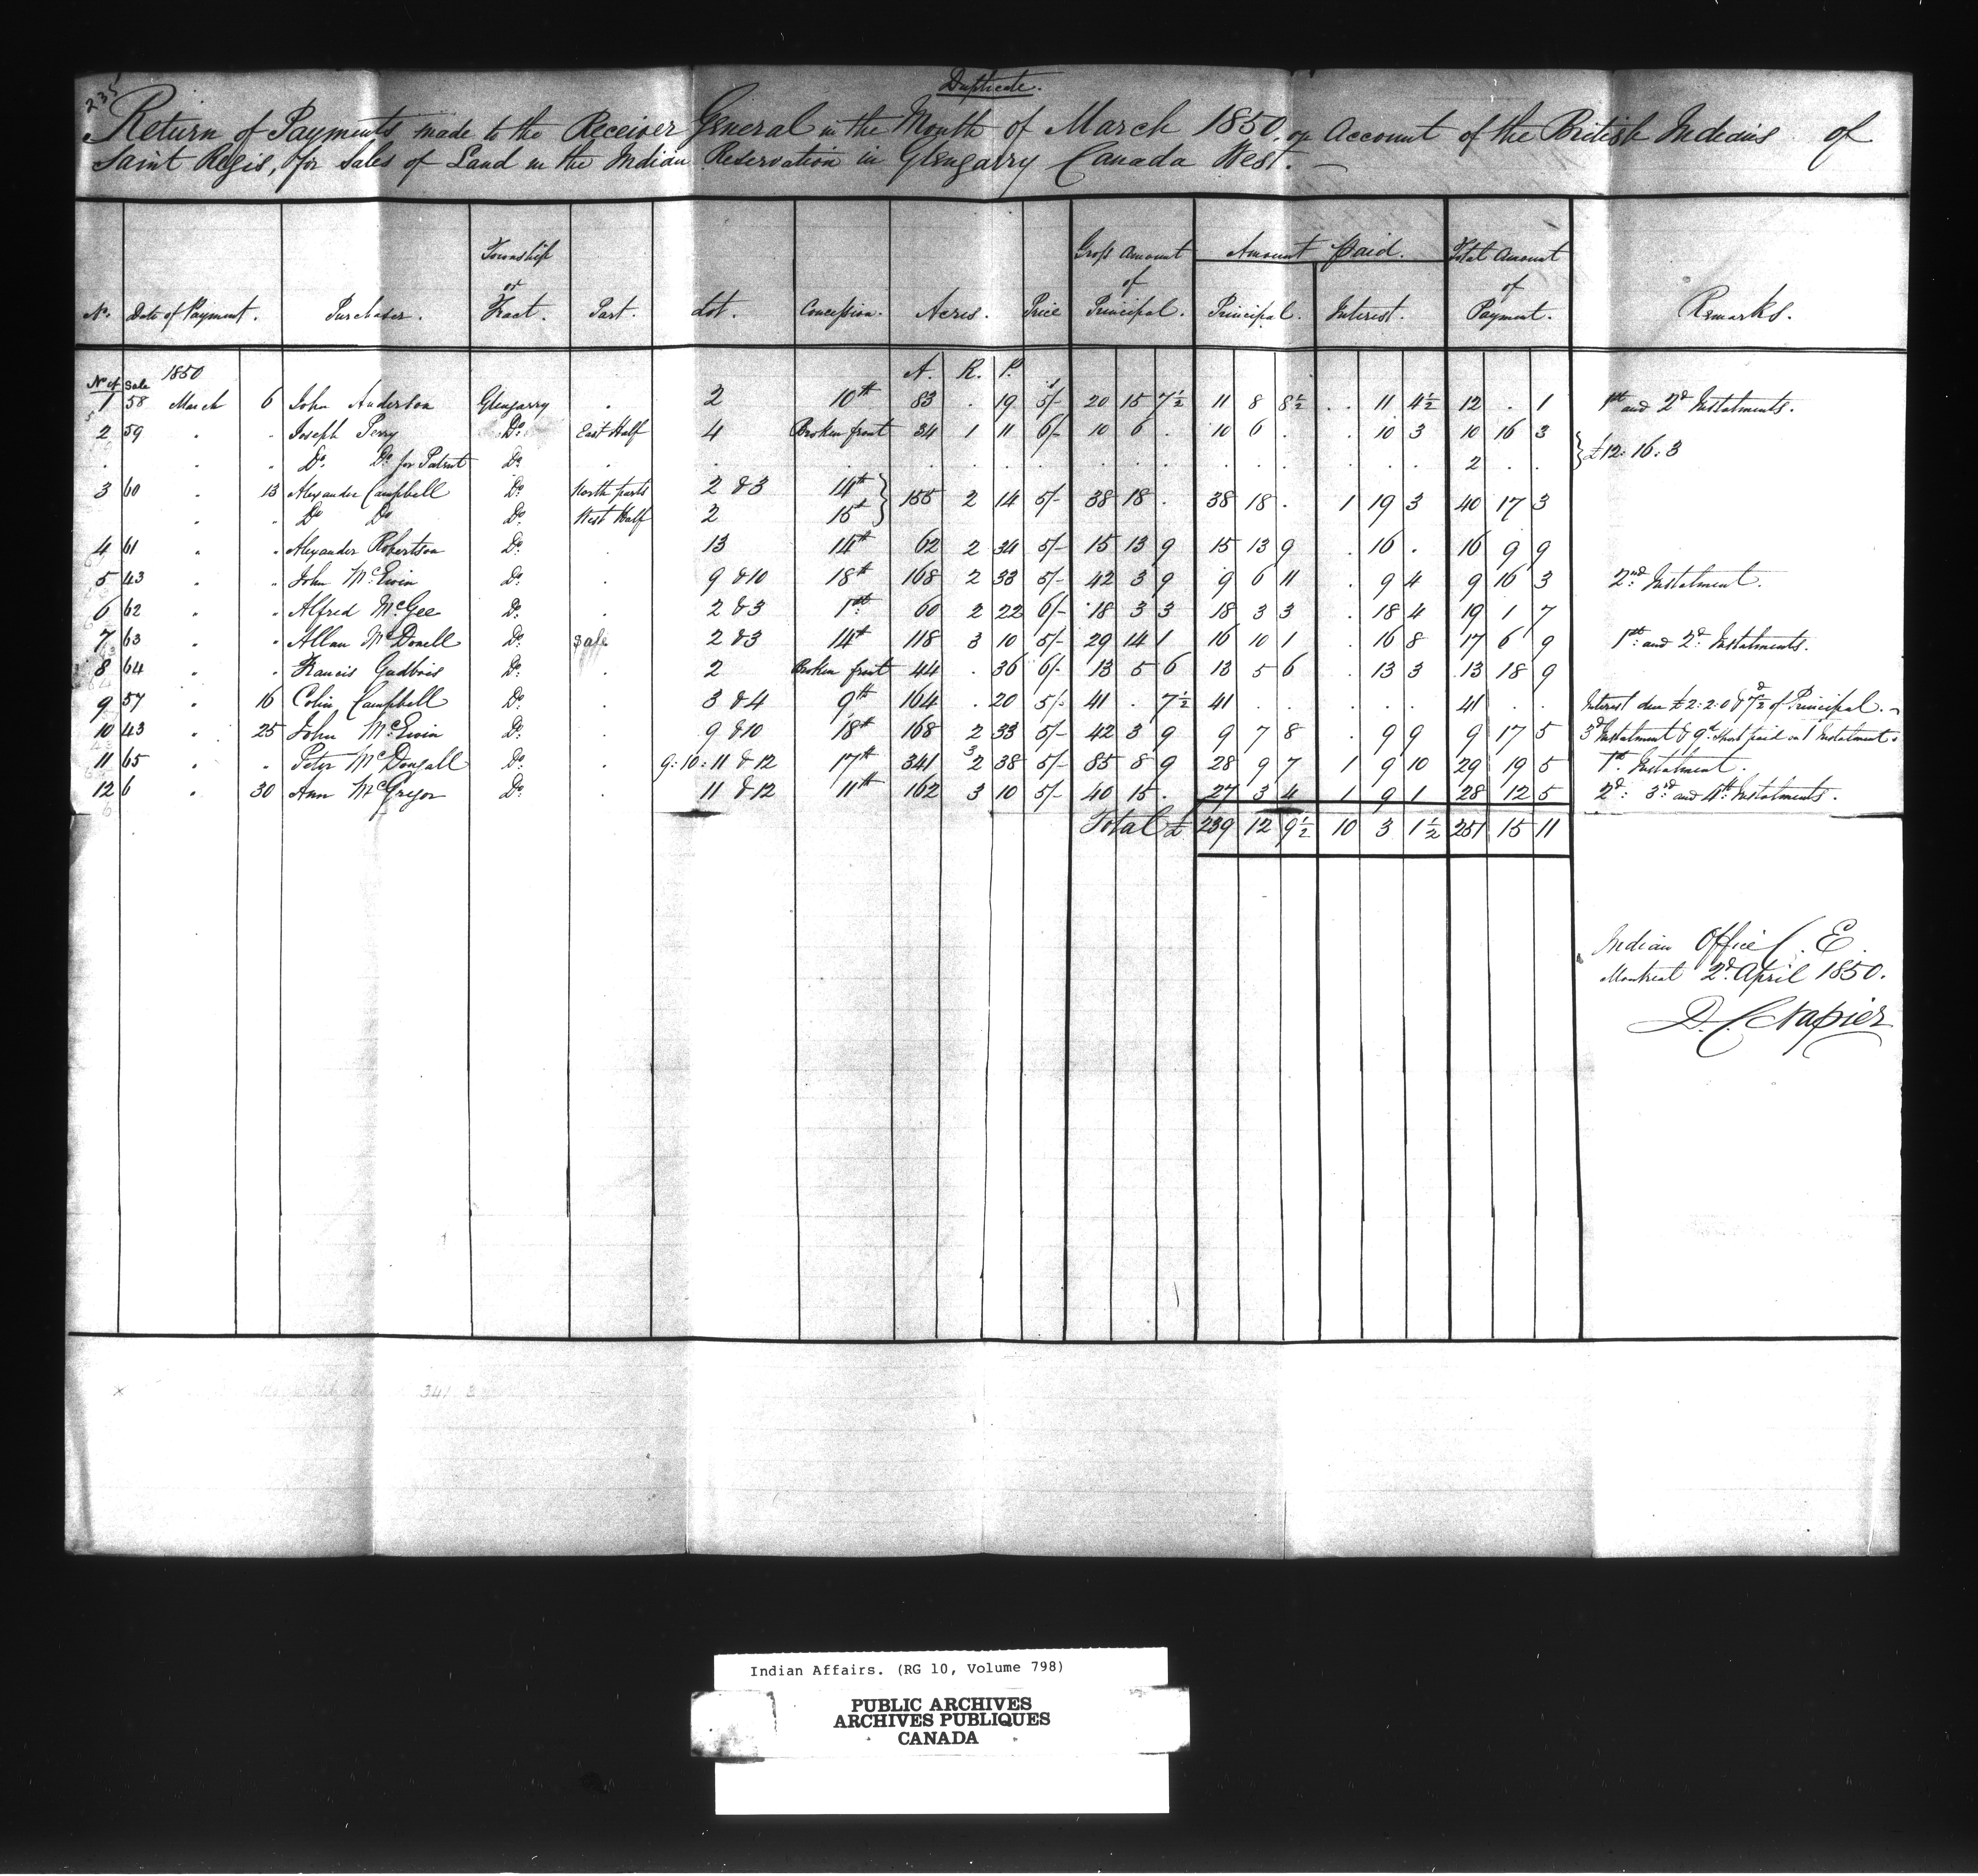 235
Duplicate.
Return of Payments made to the Receiver General in the Month of March 1850, on Account of the British Indians of
Saint Regis, for Sales of Land in the Indian Reservation in Glengarry Canada West. —
No. Date of Payment. Purchaser. Township or Tract. Part. Lot. Concession. Acres. Price Gross Amount of Principal. Amount Paid. Principal. Interest. Total Amount of Payment. Remarks.
No. of Sale 1850 A. R. P.
1 58 March 6 John Anderson Glengarry . 2 10th 83 . 19 5/- 20 15 7½ 11 8 8½ . 11 4½ 12 . 1 1st and 2d Instalments.
2 59 " " Joseph Perry Do. East Half 4 Broken front 34 1 11 6/- 10 6 . 10 6 . . 10 3 10 16 3
" Do. Do. for Patent Do. . . . . . . . . . . . . . . . . 2 . . } £12: 16: 3
3 60 " 13 Alexander Campbell Do. North parts 2 & 3 14th } 155 2 14 5/- 38 18 . 38 18 . 1 19 3 40 17 3
" " Do Do Do. West Half 2 15th
4 61 " " Alexander Robertson Do. . 13 14th 62 2 34 5/- 15 13 9 15 13 9 . 16 . 16 9 9
5 43 " " John McEwin Do. . 9 & 10 18th 168 2 33 5/- 42 3 9 9 6 11 . 9 4 9 16 3 2nd Instalment.
6 62 " " Alfred McGee Do. . 2 & 3 1st 60 2 22 6/- 18 3 3 18 3 3 . 18 4 19 1 7
7 63 " " Allan McDonell Do. Sale 2 & 3 14th 118 3 10 5/- 29 14 1 16 10 1 . 16 8 17 6 9 1st and 2d Instalments.
8 64 " " Francis Gadbois Do. . 2 Broken front 44 . 36 6/- 13 5 6 13 5 6 . 13 3 13 18 9
9 57 " 16 Colin Campbell Do. . 3 & 4 9th 164 . 20 5/- 41 . 7½ 41 . . . . . 41 . . Interest due £2: 2: 0 & 7½d of Principal. —
10 43 " 25 John McEwin Do. . 9 & 10 18th 168 2 33 5/- 42 3 9 9 7 8 . 9 9 9 17 5 3d Instalment & 9d short paid on 1 Instalment.
11 65 " " Peter McDougall Do. . 9: 10: 11 & 12 17th 341 3 2 38 5/- 85 8 9 28 9 7 1 9 10 29 19 5 1st Instalment.
12 6 " 30 Ann McGregor Do. . 11 & 12 11th 162 3 10 5/- 40 15 . 27 3 4 1 9 1 28 12 5 2d: 3rd and 4th Instalments.
Total £ 239 12 9½ 10 3 1½ 251 15 11
Indian Office C. E.
Montreal 2d. April 1850.
D. C. Napier
x 341 3
Indian Affairs. (RG 10, Volume 798)
PUBLIC ARCHIVES
ARCHIVES PUBLIQUES
CANADA